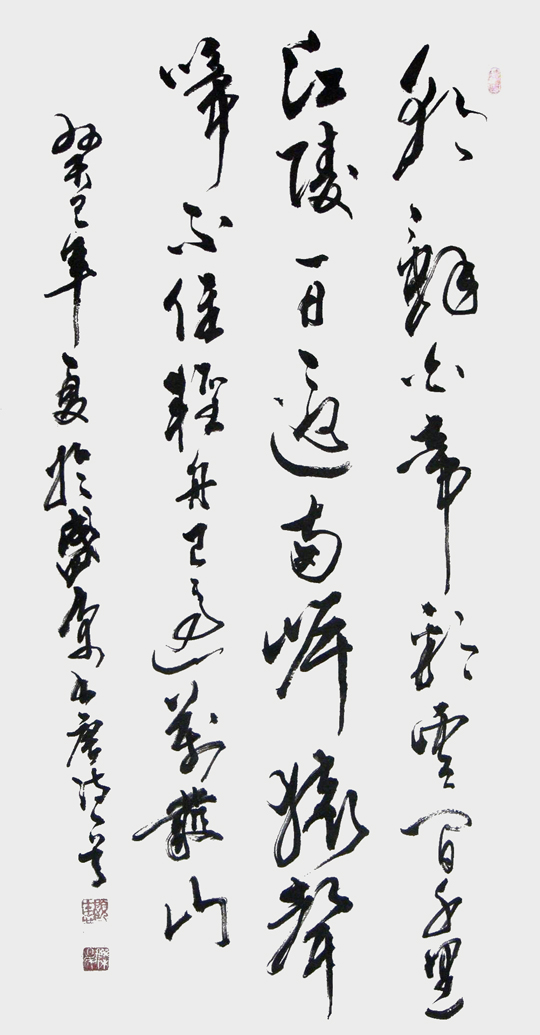 朝辭白帝彩雲間千里
江陵一日還兩岸猿聲
啼不住輕舟已過萬重山
癸巳年夏於盛京書唐詩一首